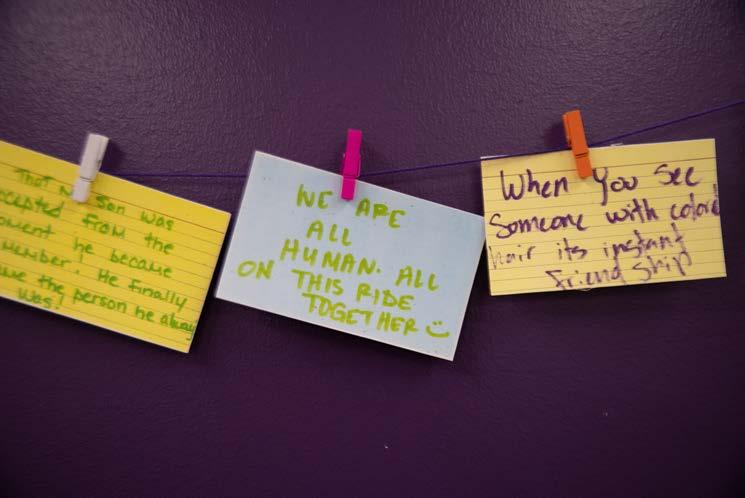 That my Son was
ccepted from the
oment he became
member! He finally
ame the person he alway
was!
WE ARE
ALL
HUMAN. ALL
ON THIS RIDE
TOGETHER
When You See
Someone with colord
hair its instant
Friend Ship